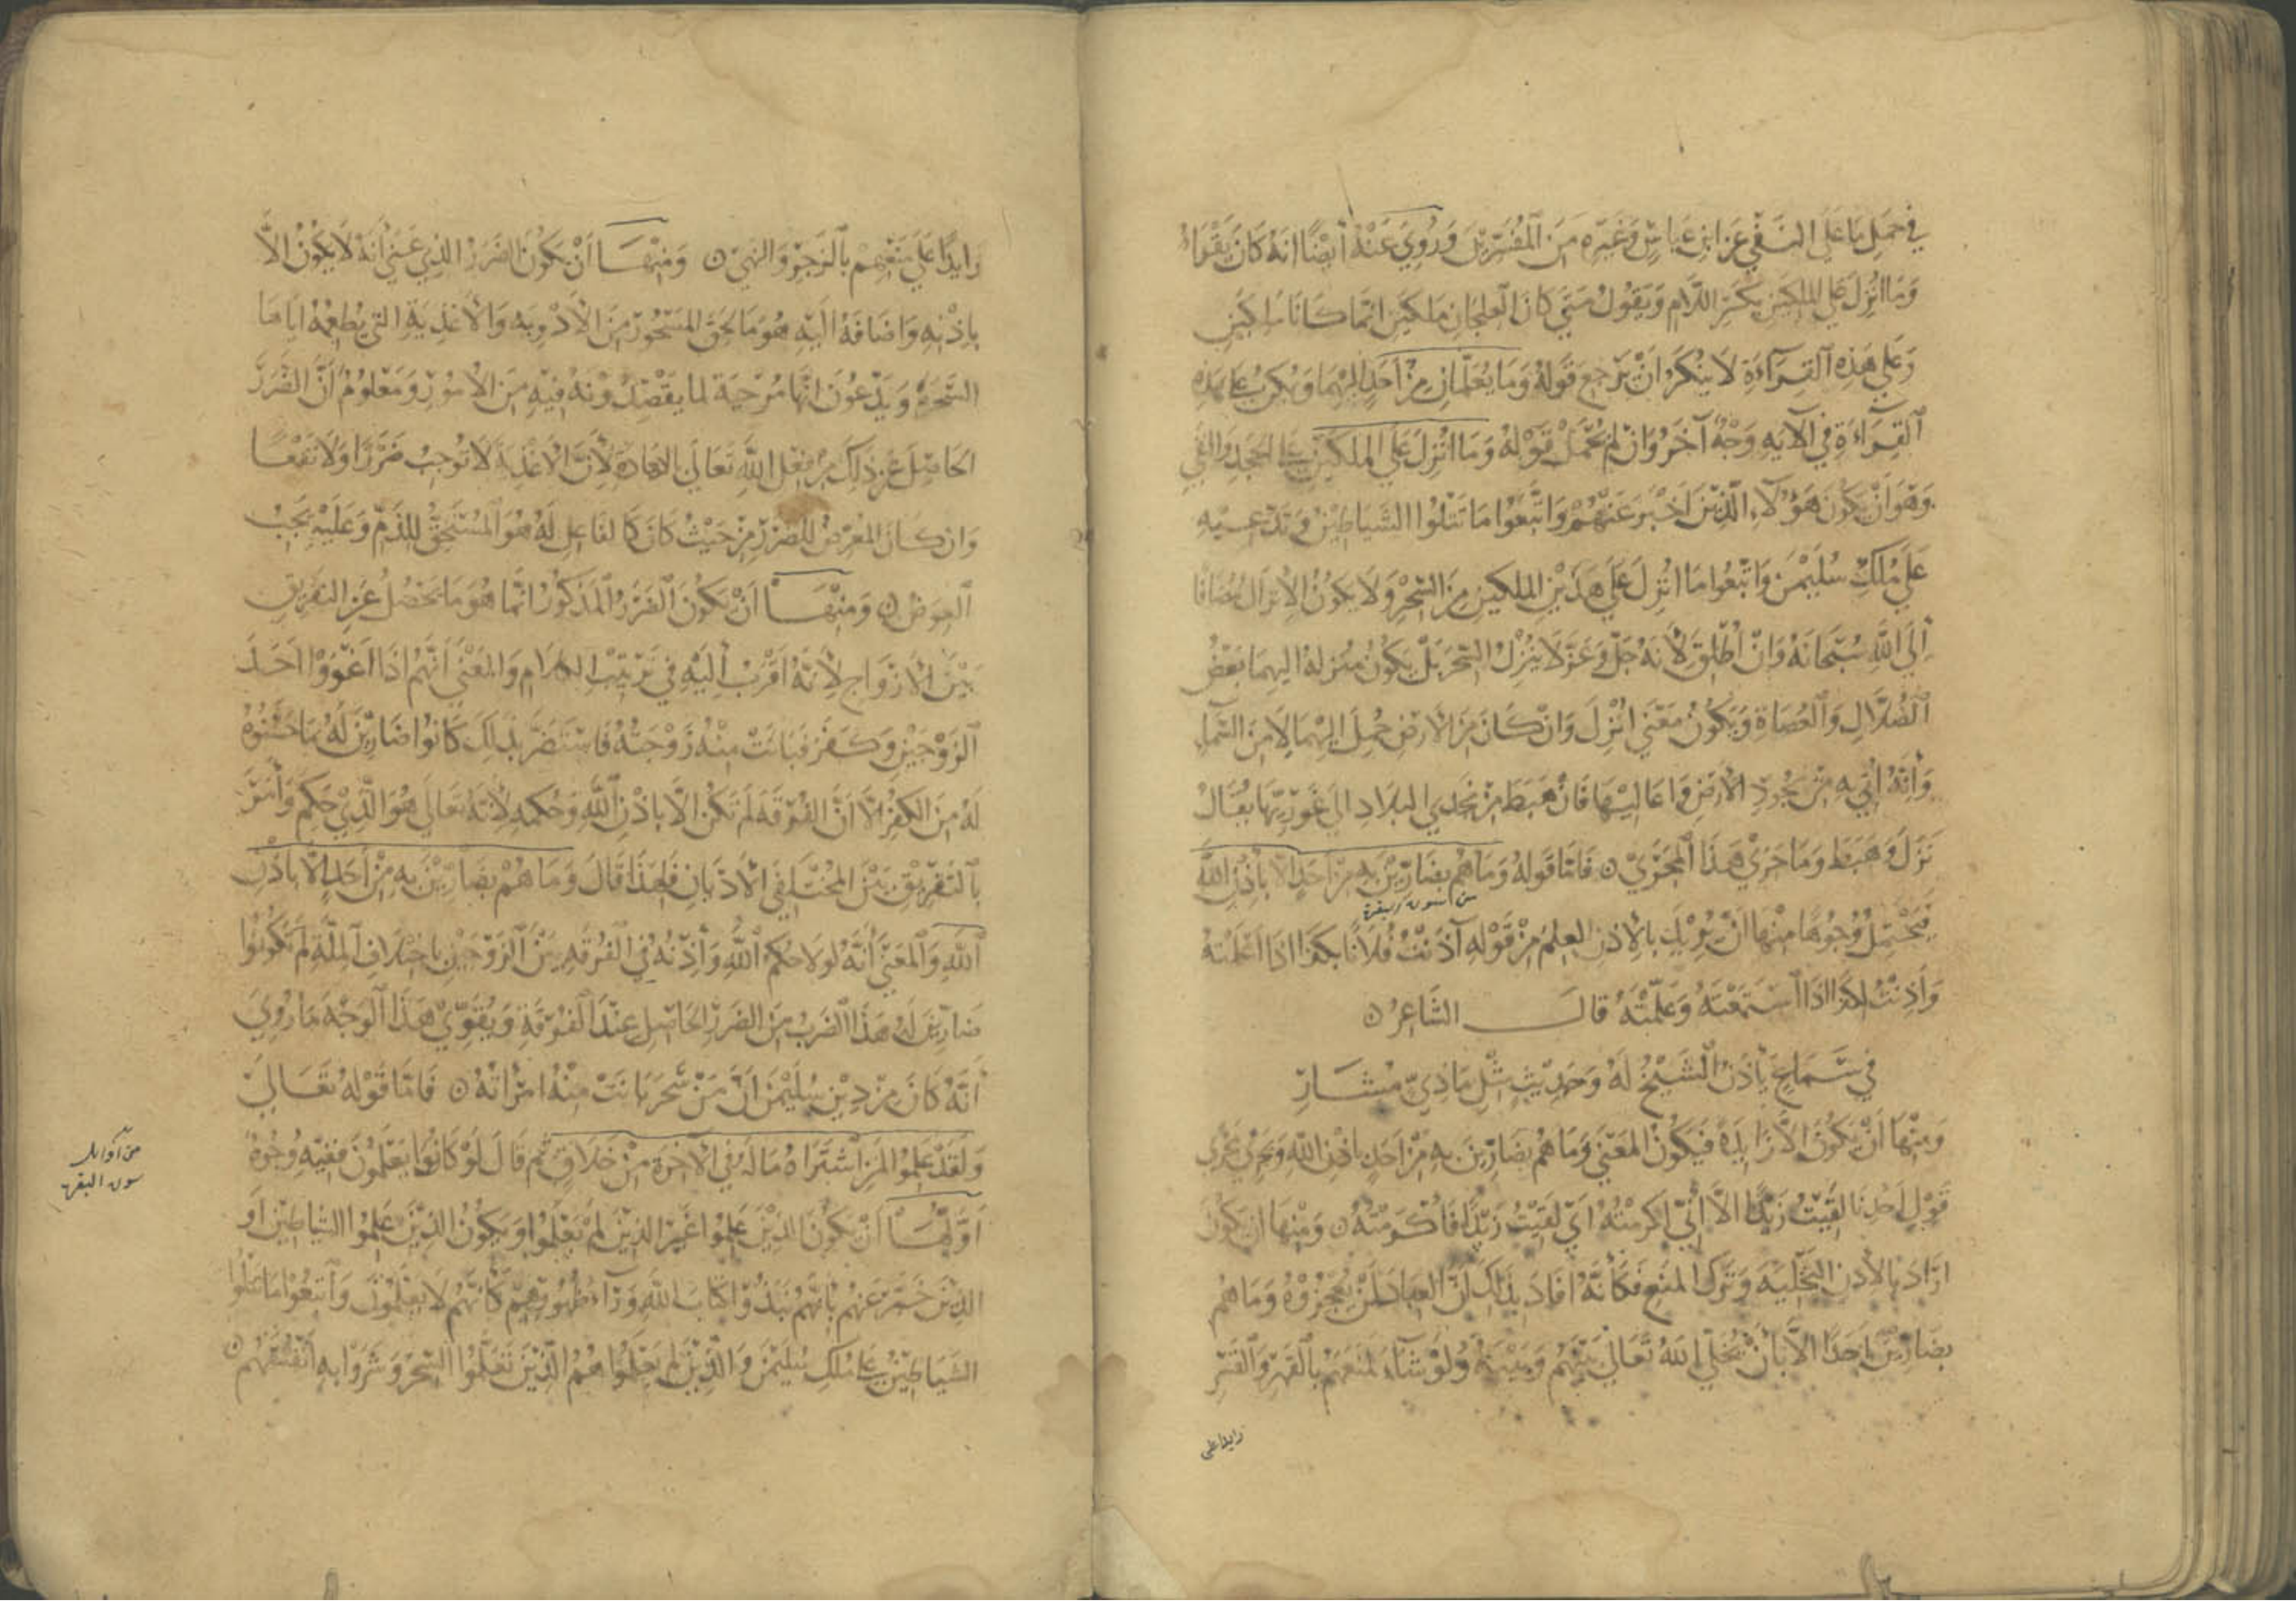 في حمل ما على النفي عن ابن عباس وغيره من المفسرين وروي عنه أيضا انه كان يقراء
وما انزل على الملكين بكسر اللام ويقول متى كان العلجان ملكين انما كانا ملكين
وعلى هذه القراءة لا ينكر ان يرجع قوله وما يعلمان من احد اليهما ويمكن على هذه
القراءة في الآيه وجه آخر وان لم يحمل قوله وما انزل على الملكين على الجحد والنفي
وهو ان يكون هؤلاء الذين اخبر عنهم واتبعوا ما تتلوا الشياطين وتدعيه
على ملك سليمن واتبعوا ما انزل على هذين الملكين من السحر ولا يكون الانزال مضافا
الى الله سبحانه وان اطلق لأنه جل وعز لا ينزل السحر بل يكون منزله اليهما بعض
الضلال والعصاة ويكون معنى انزل وان كان من الارض حمل اليهما لا من السماء
وأنه أتي به من نجود الارض واعاليها فان هبط من نجدي البلاد الى غورها يقال
نزل وهبط وما جرى هذا المجرى ن فاما قوله وما هم بضارين به من احد الا باذن الله
من سورة البقرة
فيحتمل وجوها منها ان يريد بالاذن العلم من قوله آذنت فلانا بكذا اذا اعلمته
واذنت لكذا اذا استمعته وعلمته قال الشاعر ن
في سماع يأذن الشيخ له وحديث مثل ماذي مشار
ومنها ان يكون الا زايدة فيكون المعنى وما هم بضارين به من احد باذن الله ويجري مجرى
قول احدنا لقيت زيدا الا أني اكرمته اي لقيت زيدا فاكرمته ن ومنها ان يكون
اراد بالاذن التخليه وترك المنع فكأنه افاد بذلك ان العباد لن يعجزوه وما هم
بضارين احدا الا بان يخلي الله تعالى بينهم وبينه ولو شاء لمنعهم بالقهر والقسر
زايدا على
زايدا على منعهم بالزجر والنهي ن ومنها أن يكون الضرر الذي عني أنه لا يكون الا
باذنه واضافه اليه هو ما لحق المسحور من الادويه والاغذية التي يطعمه اياها
السحرة ويدعون انها موجبة لما يقصدونه فيه من الامور ومعلوم أن الضرر
الحاصل عن ذلك من فعل الله تعالى بالعادة لأن الاغذية لا توجب ضررا ولا نفعا
وان كان المعرض للضرر من حيث كان كالفاعل له هو المستحق للذم وعليه يجب
العوض ن ومنها ان يكون الضرر المذكور انما هو ما يحصل عن التفريق
بين الازواج لأنه اقرب اليه في ترتيب الكلام والمعنى انهم اذا اغووا احد
الزوجين وكفر فبانت منه زوجته فاستضر بذلك كانوا ضارين له بما حسنوه
له من الكفر الا ان الفرقه لم تكن الا باذن الله وحكمه لأنه تعالى هو الذي حكم وأمر
بالتفريق بين المختلفي الاديان فلهذا قال وما هم بضارين به من أحد الا باذن
الله والمعنى أنه لولا حكم الله وأذنه في الفرقه بين الزوجين باختلاف الملة لم يكونوا
ضارين له هذا الضرب من الضرر الحاصل عند الفرقة ويقوي هذا الوجه ما روي
أنه كان من دين سليمن ان من سحر بانت منه امرأته ن فاما قوله تعالى
ولقد علموا لمن اشتراه ما له في الآخرة من خلاق ثم قال لو كانوا يعلمون ففيه وجوه
اولها أن يكون الذين علموا غير الذين لم يعلموا ويكون الذين علموا الشياطين أو
الذين خبر عنهم بانهم نبذوا كتاب الله وراء ظهورهم كأنهم لا يعلمون واتبعوا ما تتلوا
الشياطين على ملك سليمن والذين لم يعلموا هم الذين تعلموا السحر وشروا به أنفسهم ن
من اوايل
سورة البقرة